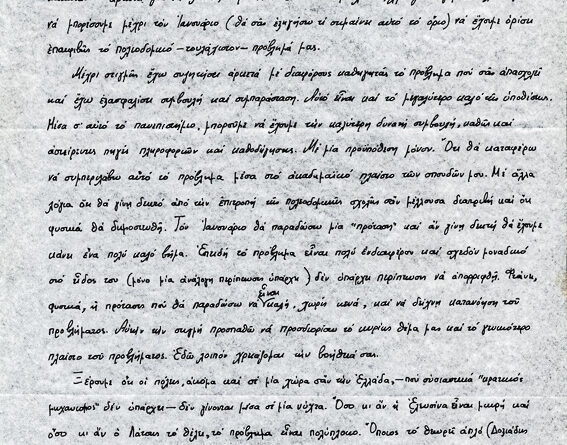 νὰ μπορέσουμε μέχρι τὸν Ἰανουάριο (θὰ σᾶς ἐξηγήσω τί σημαίνει αὐτὸ τὸ ὅριο) νὰ ἔχουμε ὁρίσει
ἐπακριβῶς τὸ πολεοδομικὸ —τουλάχιστον— πρόβλημά μας.
Μέχρι στιγμῆς ἔχω συζητήσει ἀρκετὰ μὲ διαφόρους καθηγητὰς τὸ πρόβλημα ποὺ σᾶς ἀπασχολεῖ
καὶ ἔχω ἐξασφαλίσει συμβουλὴ καὶ συμπαράσταση. Αὐτὸ εἶναι καὶ τὸ μεγαλύτερο καλὸ τῆς ὑποθέσεως.
Μέσα σ' αὐτὸ τὸ πανεπιστήμιο, μποροῦμε νὰ ἔχουμε τὴν καλύτερη δυνατὴ συμβουλή, καθὼς καὶ
ἀστείρευτες πηγὲς πληροφοριῶν καὶ καθοδήγησης. Μὲ μία προϋπόθεση μόνον. Ὅτι θὰ καταφέρω
νὰ συμπεριλάβω αὐτὸ τὸ πρόβλημα μέσα στὸ ἀκαδημαϊκὸ πλαίσιο τῶν σπουδῶν μου. Μὲ ἄλλα
λόγια ὅτι θὰ γίνη δεκτὸ ἀπὸ τὴν ἐπιτροπὴ τῆς πολεοδομικῆς σχολῆς σὰν μέλλουσα διατριβὴ καὶ ὅτι
φυσικὰ θὰ δημοσιευθῆ. Τὸν Ἰανουάριο θὰ παραδώσω μία "πρόταση" καὶ ἂν γίνη δεκτὴ θὰ ἔχουμε
κάνει ἕνα πολὺ καλὸ βῆμα. Ἐπειδὴ τὸ πρόβλημα εἶναι πολὺ ἐνδιαφέρον καὶ σχεδὸν μοναδικὸ
στὸ εἶδος του (μόνο μία ἀνάλογη περίπτωσις ὑπάρχει) δὲν ὑπάρχει περίπτωση νὰ ἀπορριφθῆ. Φτάνει,
φυσικά, ἡ πρότασις ποὺ θὰ παραδώσω νὰ εἶναι καλή, χωρὶς κενά, καὶ νὰ δείχνη κατανόηση τοῦ
προβλήματος. Αὐτὴν τὴν στιγμὴ προσπαθῶ νὰ προσδιορίσω τὸ κυρίως θέμα μας καὶ τὸ γενικότερο
πλαίσιο τοῦ προβλήματος. Ἐδῶ λοιπὸν χρειάζομαι τὴν βοήθειά σας.
Ξέρουμε ὅτι οἱ πόλεις, ἀκόμα καὶ σὲ μία χώρα σὰν τὴν Ἑλλάδα,—ποὺ οὐσιαστικὰ "κρατικὸς
μηχανισμὸς" δὲν ὑπάρχει— δὲν γίνονται μέσα σὲ μία νύχτα. Ὅσο κι ἂν ἡ Ἐλευσίνα εἶναι μικρὴ καὶ
ὅσο κι ἂν ὁ Λάτσης τὸ θέλει, τὸ πρόβλημα εἶναι πολύπλοκο. Ὅποιος τὸ θεωρεῖ ἁπλὸ (Δοξιάδης